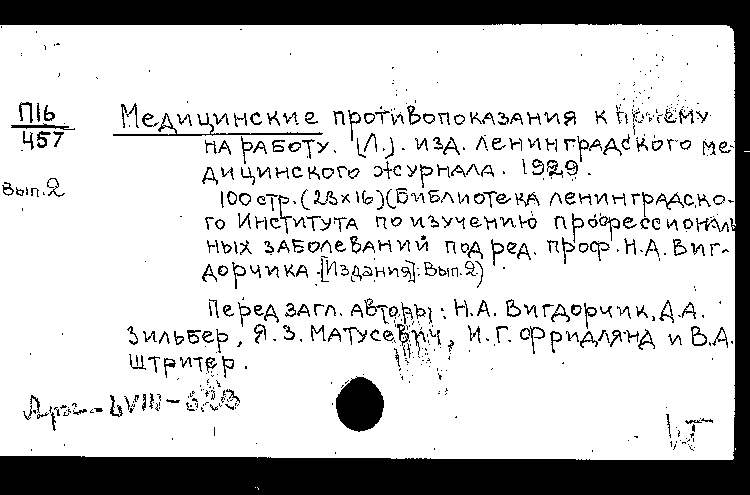 П16
457
Вып.2
Медицинские противопоказания к приему
на работу. [Л.]. изд. Ленинградского ме-
дицинского журнала. 1929.
100 стр. (23х16) (Библиотека Ленинградско-
го Института по изучению профессиональ
ных заболеваний под ред. проф. Н.А. Виг-
дорчика. [Издания]. Вып. 2)
Перед загл. авторы: Н.А. Вигдорчик, Д.А.
Зильбер, Я.З. Матусевич, И.Г. Фридлянд и В.А.
Штритер.